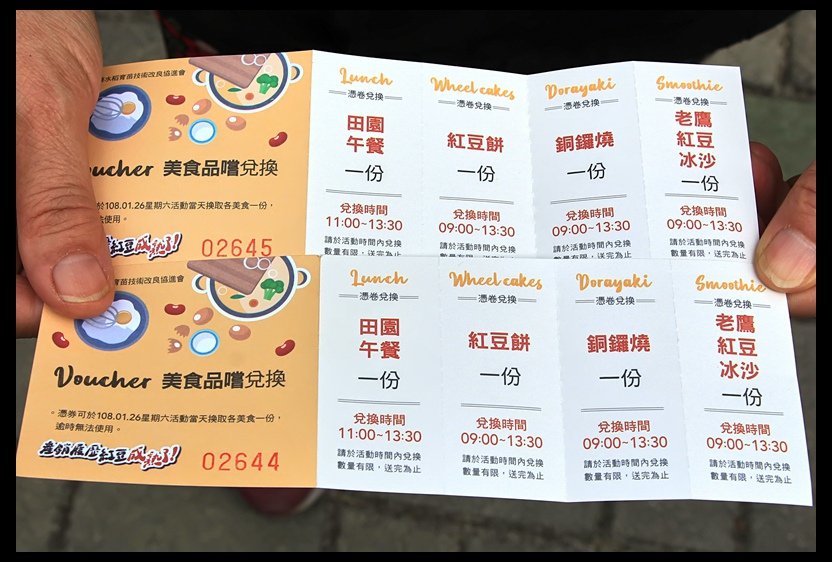 水稻育苗技術改良協進會
oucher 美食品嚐兌換
於108.01.26星期六活動當天換取各美食一份，
法使用。
紅豆成熟了!
02645
Lunch
憑卷兌換
田園
午餐
一份
兌換時間
11:00~13:30
請於活動時間內兌換
數量有限，送完為止
Wheel cakes
憑卷兌換
紅豆餅
一份
兌換時間
09:00~13:30
請於活動時間內兌換
數量有限，送完為止
Dorayaki
憑卷兌換
銅鑼燒
一份
兌換時間
09:00~13:30
請於活動時間內兌換
數量有限，送完為止
Smoothie
憑卷兌換
老鷹
紅豆
冰沙
一份
兌換時間
09:00~13:30
請於活動時間內兌換
數量有限，送完為止
育苗技術改良協進會
Voucher 美食品嚐兌換
。憑券可於108.01.26星期六活動當天換取各美食一份，
逾時無法使用。
產銷履歷紅豆成熟了!
02644
Lunch
憑卷兌換
田園
午餐
一份
兌換時間
11:00~13:30
請於活動時間內兌換
數量有限，送完為止
Wheel cakes
憑卷兌換
紅豆餅
一份
兌換時間
09:00~13:30
請於活動時間內兌換
數量有限，送完為止
Dorayaki
憑卷兌換
銅鑼燒
一份
兌換時間
09:00~13:30
請於活動時間內兌換
數量有限，送完為止
Smoothie
憑卷兌換
老鷹
紅豆
冰沙
一份
兌換時間
09:00~13:30
請於活動時間內兌換
數量有限，送完為止